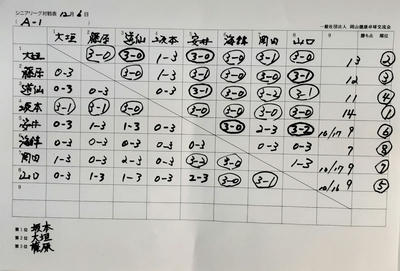 シニアリーグ対戦表 12月6日
一般社団法人 岡山健康卓球交流会
( A-1 )
1 2 3 4 5 6 7 8 9
大垣 藤原 道仙 坂本 安井 海林 岡田 山口 勝ち点 順位
1 大垣 3-0 3-0 1-3 3-0 3-0 3-1 3-0 13 ②
2 藤原 0-3 3-0 1-3 3-1 3-0 3-0 3-1 12 ③
3 道仙 0-3 0-3 0-3 3-1 3-0 3-2 3-1 11 ④
4 坂本 3-1 3-1 3-0 3-0 3-0 3-0 3-0 14 ①
5 安井 0-3 1-3 1-3 0-3 3-0 2-3 3-2 16/17 9 ⑥
6 海林 0-3 0-3 0-3 0-3 0-3 0-3 0-3 7 ⑧
7 岡田 1-3 0-3 2-3 0-3 3-2 3-0 1-3 9 ⑦
8 山口 0-3 1-3 1-3 0-3 2-3 3-0 3-1 9 ⑤
9
第1位 坂本
第2位 大垣
第3位 藤原